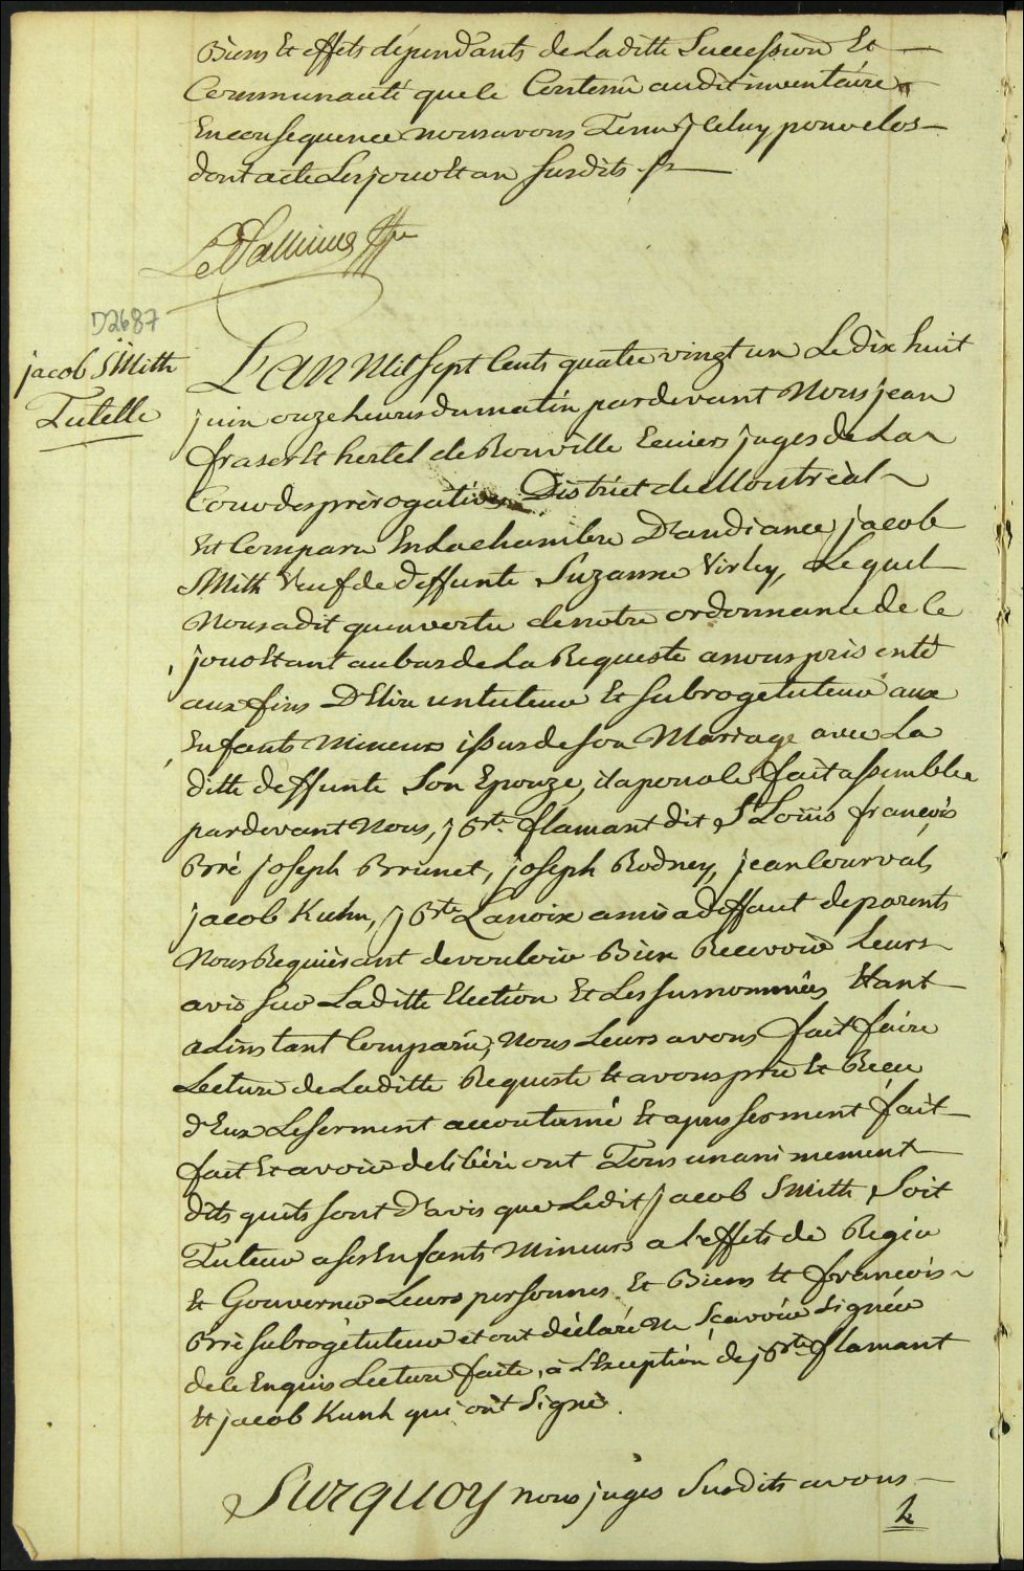 Biens Et effets dépendants de Laditte Succession Et
Communauté que le Contenû audit inventaire
En consequence nous avons Tenu jCeluy pour clos
dont acte Les jour Et an Susdits
D2687
jacob SMith
Tutelle
L'an Mil Sept Cents quatre vingt un Le dix huit
juin onze heures du matin pardevant Nous jean
fraser Et hertel de Rouville Ecuiers juges de La
Cour des prérogatives District de Montréal
Est Comparu En La chambre D'audiance jacob
SMith Veuf de deffunte Suzanne Virley, Lequel
Nous a dit qu'en vertu de notre ordonnance de Ce
jour Etant au bas de La Requeste a nous présenté
aux fins D'Elire un tuteur Et Subrogé tuteur aux
Enfants Mineurs issus de son Mariage avec La
ditte deffunte Son Epouze, il a pour ale fait assemblee
pardevant Nous, j Bte. flamant dit St Loüis françois
Brré joseph Brunet, joseph Rodney, jean Courval,
jacob Kuhn, j Bte Lanoix amis a deffaut de parents
Nous Requiérant de vouloir Bien Recevoir Leurs
avis sur Laditte Election Et Les surnommées Etant
a Linstant Comparû, Nous Leurs avons fait faire
Lecture de Laditte Requeste Et avons pris Et Recu
d'Eux Le serment accoutumé Et apres serment fait
fait Et avoir deliberé ont Tous unanimement
dits quils sont D'avis que Ledit jacob SMith Soit
Tuteur a ses Enfants Mineurs a L'effets de Regir
Et Gouverner Leurs personnes Et Biens Et francois
Brré subrogé tuteur et ont déclaré ne Sçavoir Signér
de ce Enquis Lecture faite, à L'Exception de j Bte flamant
Et jacob Kunh qui ont Signé.
Surquoy nous juges Susdits avons